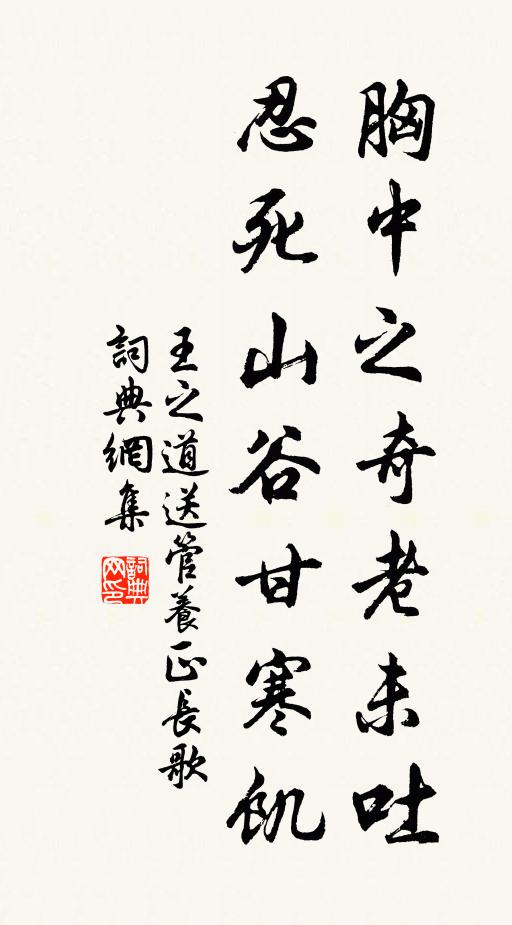 胸中之奇老未吐
忍死山谷甘寒飢
王之道送管養正長歌
詞典網集
詞典网印